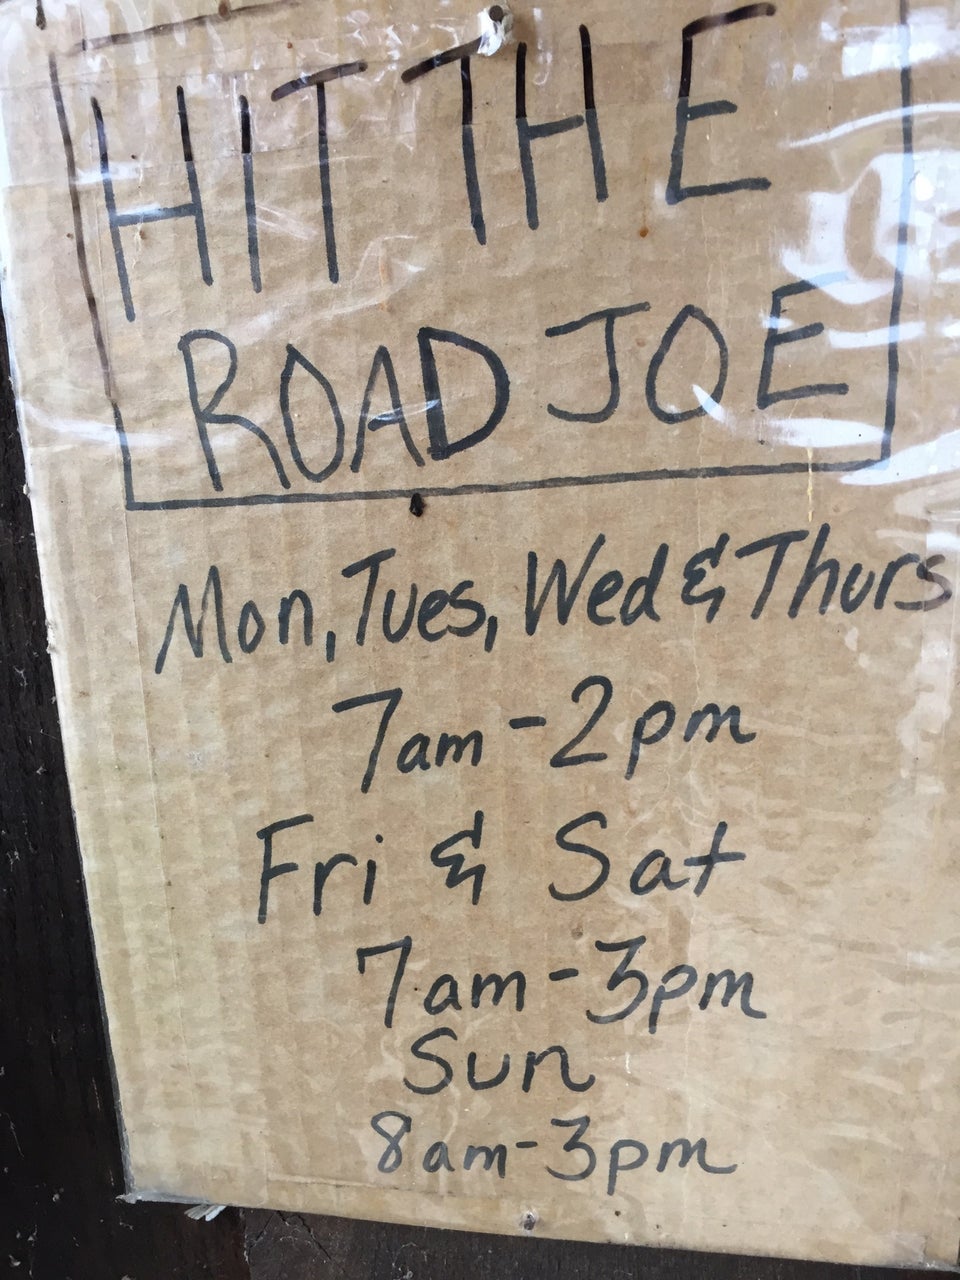 HIT THE
ROAD JOE
Mon, Tues, Wed & Thurs
7am-2pm
Fri & Sat
7am-3pm
Sun
8am-3pm